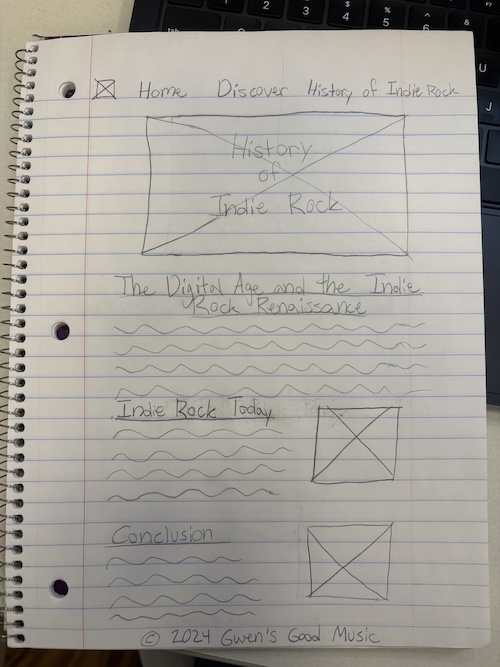 Home Discover History of Indie Rock
History
of
Indie Rock
The Digital Age and the Indie
Rock Renaissance
Indie Rock Today
Conclusion
© 2024 Gwen's Good Music